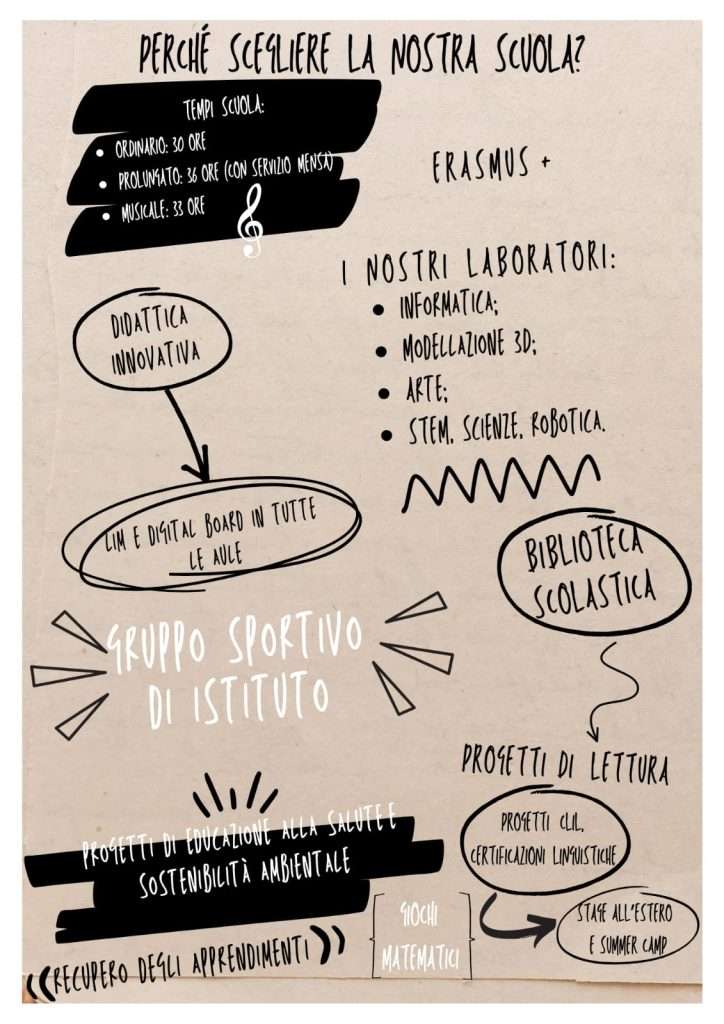 PERCHÉ SCEGLIERE LA NOSTRA SCUOLA?
TEMPI SCUOLA:
• ORDINARIO: 30 ORE
• PROLUNGATO: 36 ORE (CON SERVIZIO MENSA)
• MUSICALE: 33 ORE
ERASMUS +
I NOSTRI LABORATORI:
• INFORMATICA;
• MODELLAZIONE 3D;
• ARTE;
• STEM, SCIENZE, ROBOTICA.
DIDATTICA
INNOVATIVA
LIM E DIGITAL BOARD IN TUTTE
LE AULE
BIBLIOTECA
SCOLASTICA
GRUPPO SPORTIVO
DI ISTITUTO
PROGETTI DI LETTURA
PROGETTI CLIL,
CERTIFICAZIONI LINGUISTICHE
STAGE ALL'ESTERO
E SUMMER CAMP
PROGETTI DI EDUCAZIONE ALLA SALUTE E
SOSTENIBILITÀ AMBIENTALE
GIOCHI
MATEMATICI
RECUPERO DEGLI APPRENDIMENTI